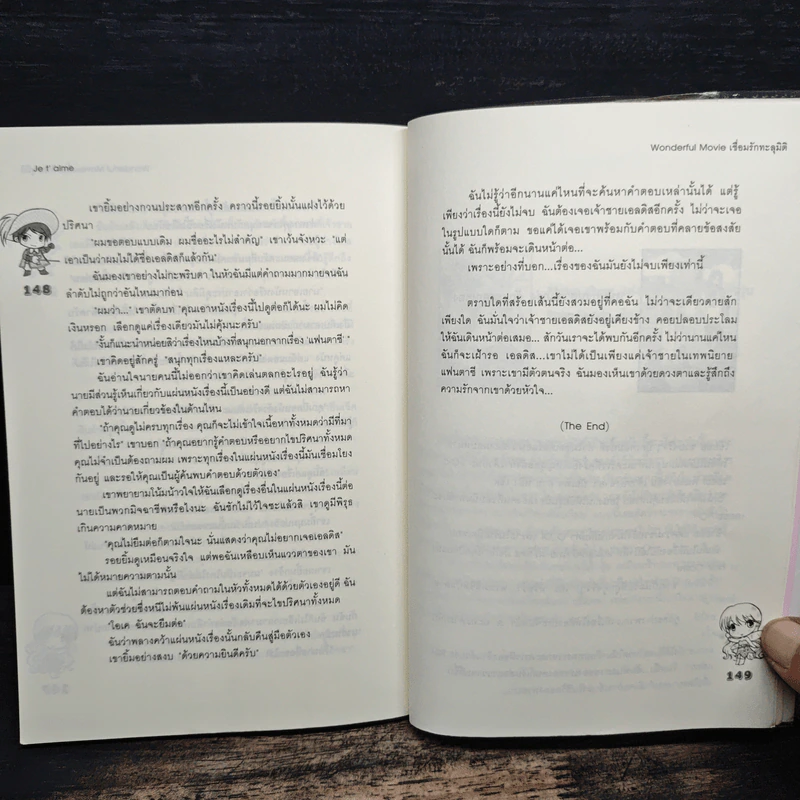 Je t' aime
เขายิ้มอย่างกวนประสาทอีกครั้ง คราวนี้รอยยิ้มนั้นแฝงไว้ด้วย
ปริศนา
"ผมขอตอบแบบเดิม ผมชื่ออะไรไม่สำคัญ" เขาเว้นจังหวะ "แต่
เอาเป็นว่าผมไม่ได้ชื่อเอลดิสก็แล้วกัน"
ฉันมองเขาอย่างไม่กะพริบตา ในหัวฉันมีแต่คำถามมากมายจนฉัน
ลำดับไม่ถูกว่าอันไหนมาก่อน
"ผมว่า..." เขาตัดบท "คุณเอาหนังเรื่องนี้ไปดูต่อก็ได้นะ ผมไม่คิด
เงินหรอก เลือกดูแค่เรื่องเดียวมันไม่คุ้มนะครับ"
"งั้นก็แนะนำหน่อยสิว่าเรื่องไหนบ้างที่สนุกนอกจากเรื่อง 'แฟนตาซี'"
เขาคิดอยู่สักครู่ "สนุกทุกเรื่องแหละครับ"
ฉันอ่านใจนายคนนี้ไม่ออกว่าเขาคิดเล่นตลกอะไรอยู่ ฉันรู้ว่า
นายมีส่วนรู้เห็นเกี่ยวกับแผ่นหนังเรื่องนี้เป็นอย่างดี แต่ฉันไม่สามารถหา
คำตอบได้ว่านายเกี่ยวข้องในด้านไหน
"ถ้าคุณดูไม่ครบทุกเรื่อง คุณก็จะไม่เข้าใจเนื้อหาทั้งหมดว่ามีที่มา
ที่ไปอย่างไร" เขาบอก "ถ้าคุณอยากรู้คำตอบหรืออยากไขปริศนาทั้งหมด
คุณไม่จำเป็นต้องถามผม เพราะทุกเรื่องในแผ่นหนังเรื่องนี้มันเชื่อมโยง
กันอยู่ และรอให้คุณเป็นผู้ค้นพบคำตอบด้วยตัวเอง"
เขาพยายามโน้มน้าวใจให้ฉันเลือกดูเรื่องอื่นในแผ่นหนังเรื่องนี้ต่อ
นายเป็นพวกมิจฉาชีพหรือไงนะ ฉันชักไม่ไว้ใจซะแล้วสิ เขาดูมีพิรุธ
เกินความคาดหมาย
"คุณไม่ยืมต่อก็ตามใจนะ นั่นแสดงว่าคุณไม่อยากเจอเอลดิส"
รอยยิ้มดูเหมือนจริงใจ แต่พอฉันเหลือบเห็นแววตาของเขา มัน
ไม่ได้หมายความตามนั้น
แต่ฉันไม่สามารถตอบคำถามในหัวทั้งหมดได้ด้วยตัวเองอยู่ดี ฉัน
ต้องหาตัวช่วยซึ่งหนีไม่พ้นแผ่นหนังเรื่องเดิมที่จะไขปริศนาทั้งหมด
"โอเค ฉันจะยืมต่อ"
ฉันว่าพลางคว้าแผ่นหนังเรื่องนั้นกลับคืนสู่มือตัวเอง
เขายิ้มอย่างสงบ "ด้วยความยินดีครับ"
148
Wonderful Movie เชื่อมรักทะลุมิติ
ฉันไม่รู้ว่าอีกนานแค่ไหนที่จะค้นหาคำตอบเหล่านั้นได้ แต่รู้
เพียงว่าเรื่องนี้ยังไม่จบ ฉันต้องเจอเจ้าชายเอลดิสอีกครั้ง ไม่ว่าจะเจอ
ในรูปแบบใดก็ตาม ขอแค่ได้เจอเขาพร้อมกับคำตอบที่คลายข้อสงสัย
นั้นได้ ฉันก็พร้อมจะเดินหน้าต่อ...
เพราะอย่างที่บอก...เรื่องของฉันมันยังไม่จบเพียงเท่านี้
ตราบใดที่สร้อยเส้นนี้ยังสวมอยู่ที่คอฉัน ไม่ว่าจะเดียวดายสัก
เพียงใด ฉันมั่นใจว่าเจ้าชายเอลดิสยังอยู่เคียงข้าง คอยปลอบประโลม
ให้ฉันเดินหน้าต่อเสมอ... สักวันเราจะได้พบกันอีกครั้ง ไม่ว่านานแค่ไหน
ฉันก็จะเฝ้ารอ เอลดิส...เขาไม่ได้เป็นเพียงแค่เจ้าชายในเทพนิยาย
แฟนตาซี เพราะเขามีตัวตนจริง ฉันมองเห็นเขาด้วยดวงตาและรู้สึกถึง
ความรักจากเขาด้วยหัวใจ...
(The End)
149